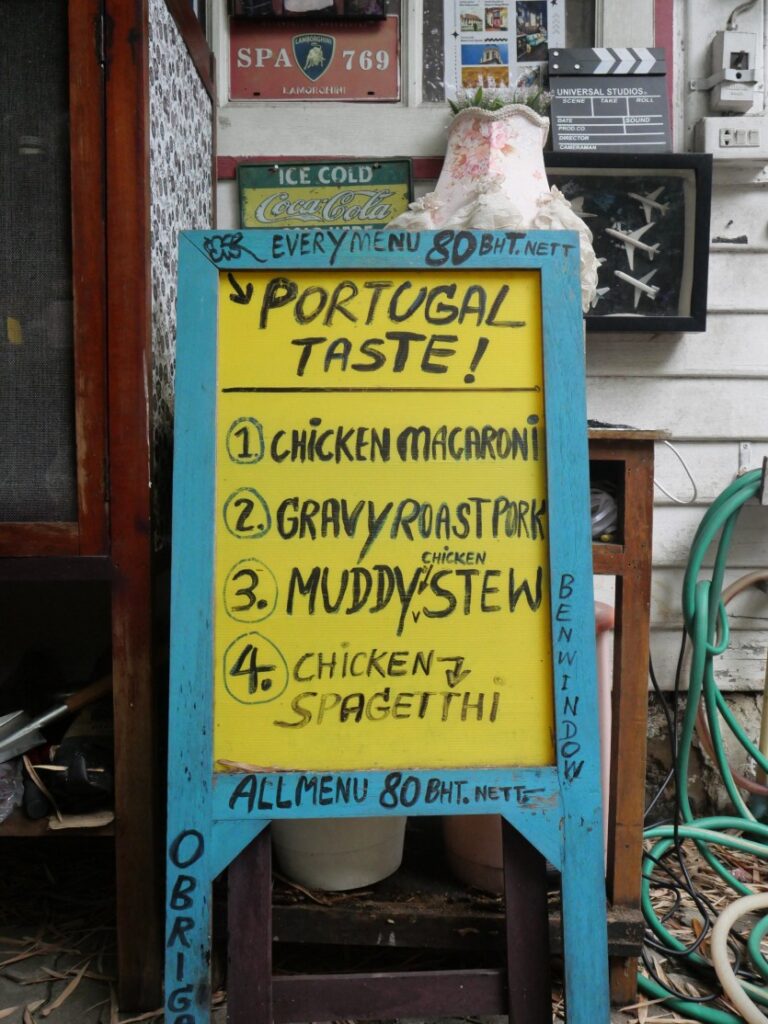 LAMBORGHINI
SPA 769
LAMORGHINI
UNIVERSAL STUDIOS
SCENE TAKE ROLL
DATE SOUND
PROD.CO
DIRECTOR
CAMERAMAN
ICE COLD
Coca-Cola
EVERY MENU 80 BHT. NETT
PORTUGAL
TASTE!
1 CHICKEN MACARONI
2. GRAVY ROAST PORK
CHICKEN
3. MUDDY STEW
4. CHICKEN
SPAGETTHI
ALL MENU 80 BHT. NETT
BENWINDOW
OBRIGA